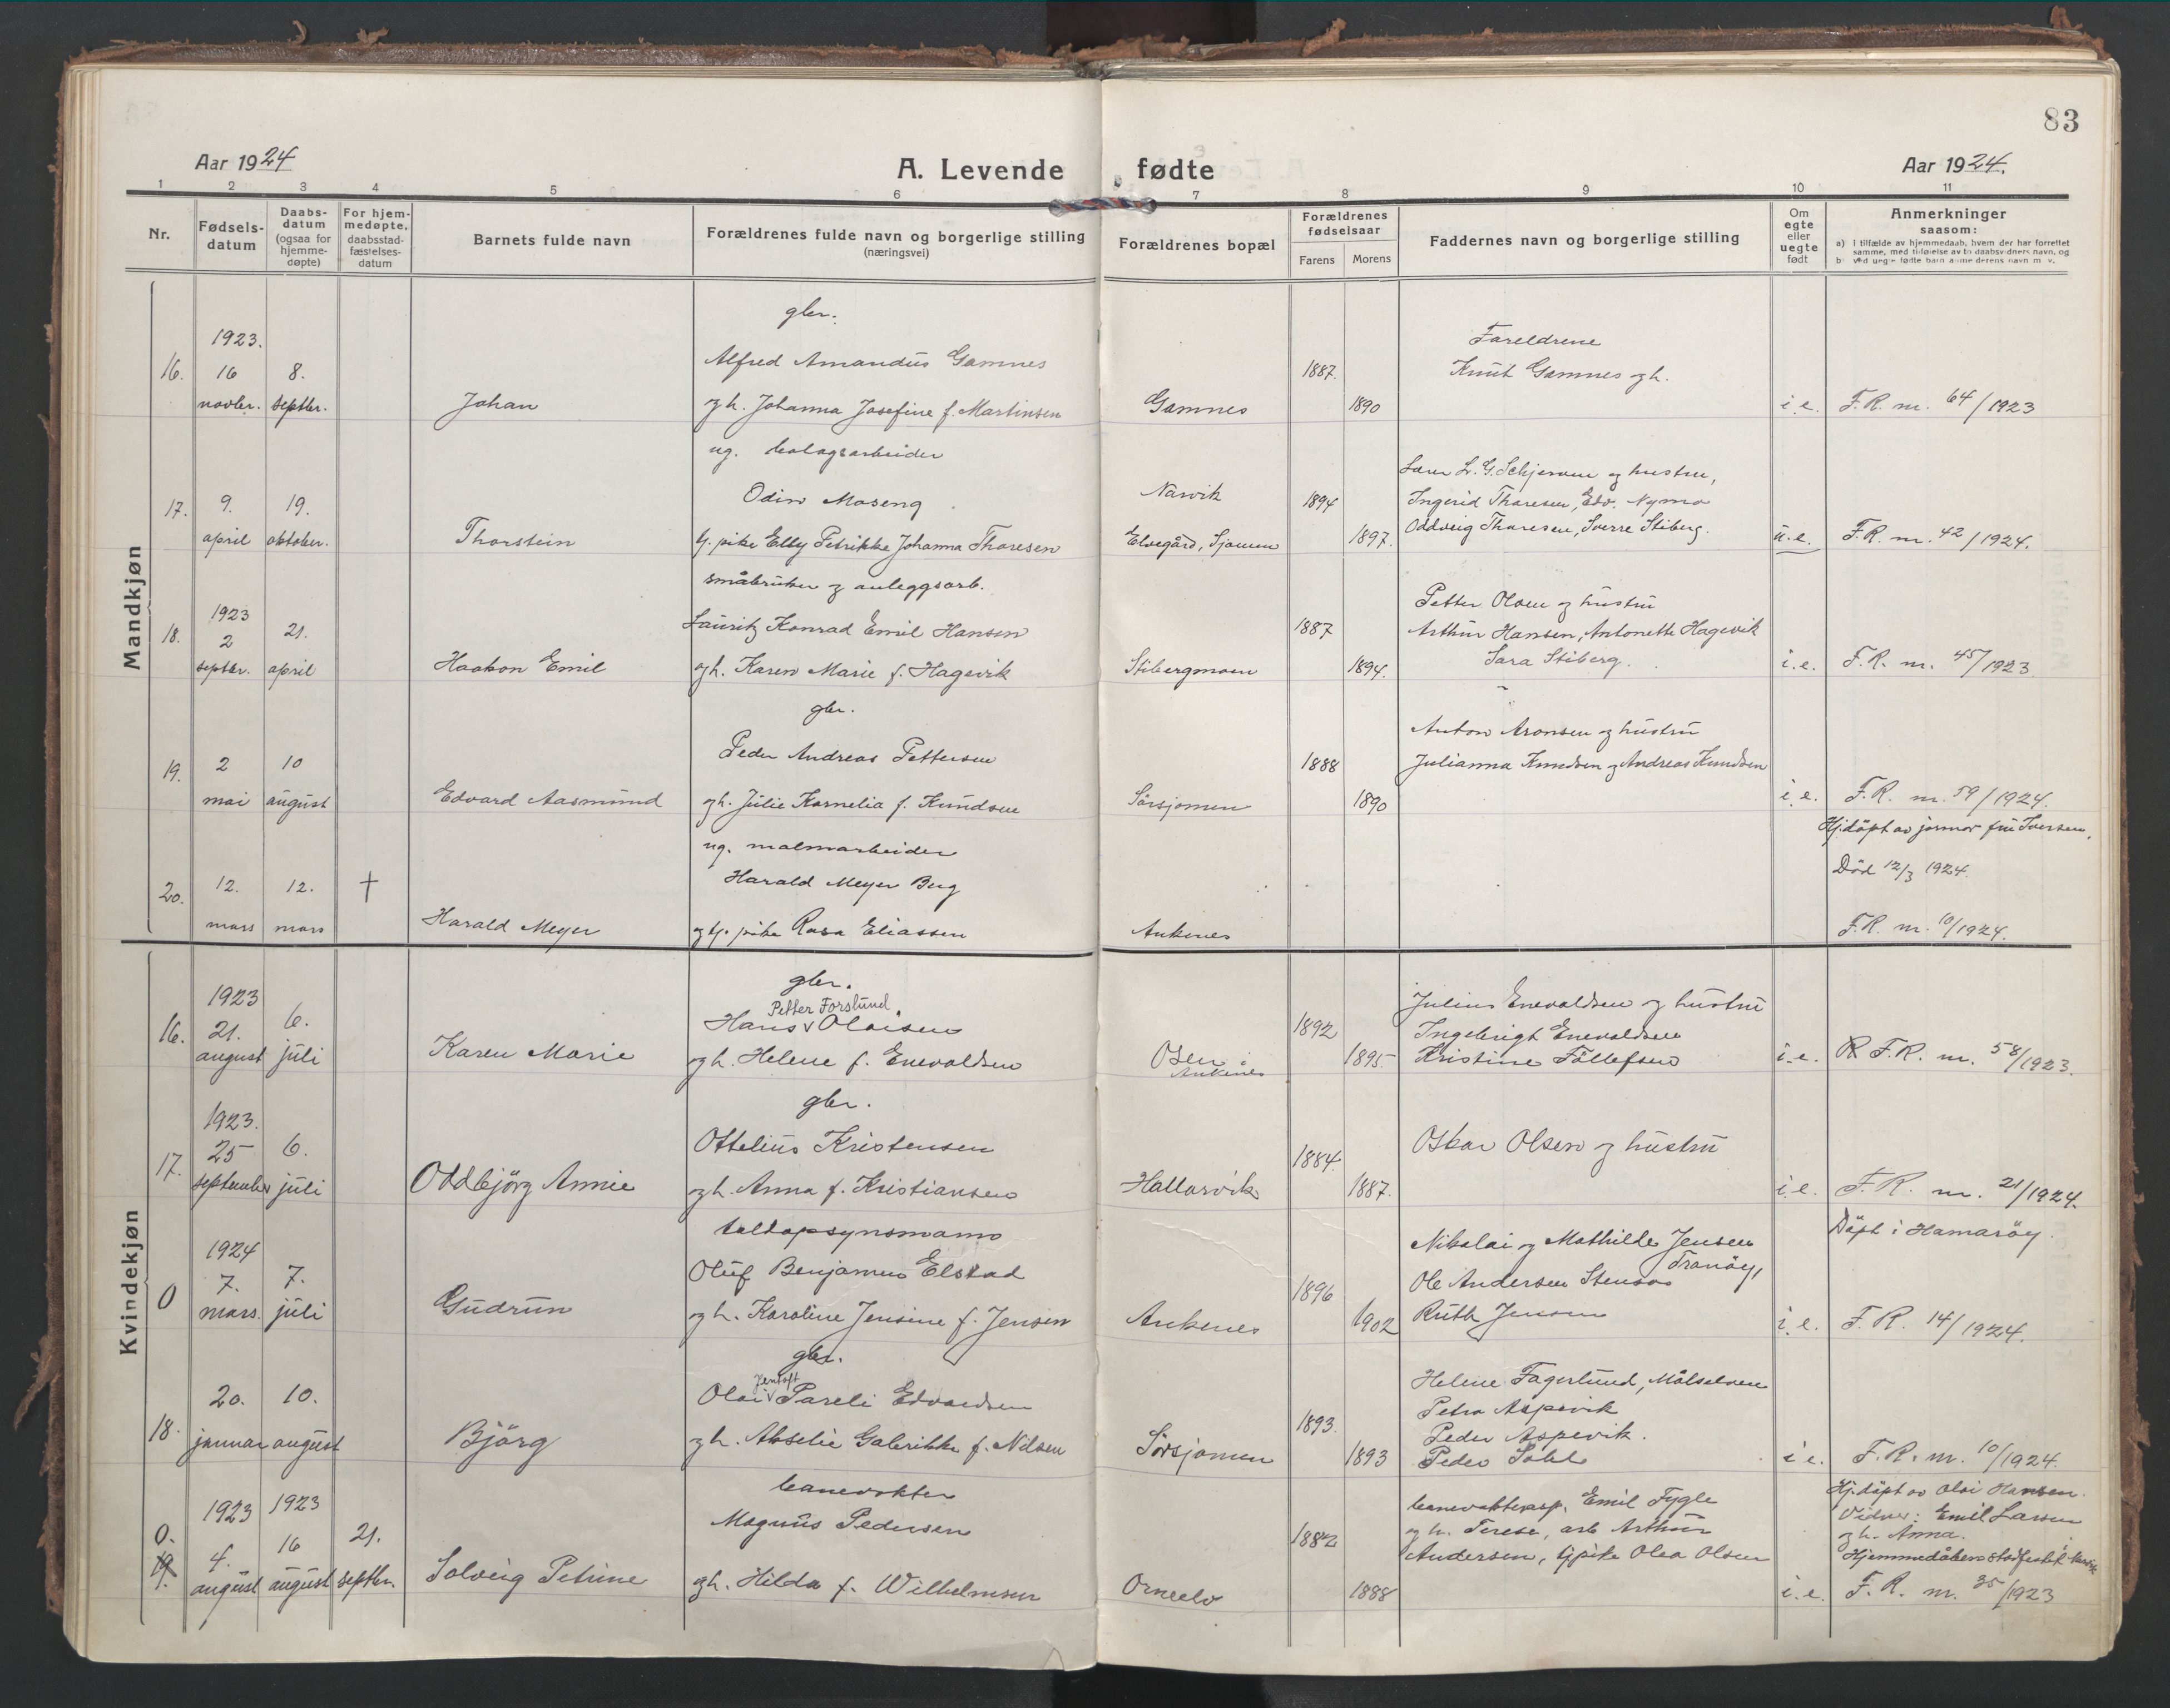 83
Aar 1924
A. Levende fødte
Aar 1924.
1 2 3 4 5 6 7 8 9 10 11
Nr.
Fødsels-
datum
Daabs-
datum
(ogsaa for
hjemme-
døpte)
For hjem-
medøpte,
daabsstad-
fæstelses-
datum
Barnets fulde navn
Forældrenes fulde navn og borgerlige stilling
(næringsvei)
Forældrenes bopæl
Forældrenes
fødselsaar
Farens Morens
Faddernes navn og borgerlige stilling
Om
egte
eller
uegte
født
Anmerkninger
saasom:
a) i tilfælde av hjemmedaab, hvem der har forrettet
samme, med tilføielse av to daabsvidners navn, og
b) ved uegte fødte barn
Mandkjøn
16.
1923.
16
novbr.
8.
septbr.
Johan
gbr.
Alfred Amandus Gamnes
og h. Johanna Josefine f. Martinsen
Gamnes
1887.
1890
Foreldrene
Knut Gamnes og h.
i.e.
F.R. nr. 64/1923
17.
9.
april
19.
oktober.
Thorstein
ug. bolagsarbeider
Odin Moseng
Ug. pike Elly Petrikke Johanna Thoresen
Narvik
Elvegård, Sjomen
1894
1897.
Ingerid Thoresen, Edv. Nymo
Oddveig Thoresen, Sverre Stiberg.
u.e.
F.R. nr. 42/1924.
18.
1923
2
septbr.
21.
april
Haakon Emil
småbruker og anleggsarb.
Lauritz Konrad Emil Hansen
og h. Karen Marie f. Hagevik
Stibergmoen
1887
1894.
Petter Olsen og hustru
Arthur Hansen, Antonette Hagevik
Sara Stiberg.
i.e.
F.R. nr. 45/1923
19.
2
mai
10
august
Edvard Aasmund
gbr.
Peder Andreas Pettersen
og h. Julie Kornelia f. Knudsen
Sørsjomen
1888
1890
Anton Aronsen og hustru
Julianna Knudsen og Andreas Knudsen
i.e.
F.R. nr. 59/1924.
20.
12.
mars
12.
mars
†
Harald Meyer
ug. malmarbeider
Harald Meyer Berg
og Ug. pike Rosa Eliassen
Ankenes
Hj.döpt av jormor fru Iversen.
Död 12/3 1924.
F.R. nr. 10/1924.
Kvindekjøn
16.
1923
21.
august
6.
juli
Karen Marie
gbr.
Petter Forslund
Hans v Olaisen
og h. Helene f. Enevoldsen
Osen i
Ankenes
1892
1895.
Julius Enevoldsen og hustru
Ingebrigt Enevoldsen
Kristine Tollefsen
i.e.
F.R. nr. 58/1923.
17.
1923.
25
september
6.
juli
Oddbjörg Annie
gbr.
Ottelius Kristensen
og h. Anna f. Kristiansen
Hallarvik
1884.
1887.
Oskar Olsen og hustru
i.e.
F.R. nr. 21/1924.
0
1924
7.
mars.
7.
juli
Gudrun
toldopsynsmann
Oluf Benjamin Elstad
og h. Karoline Jensine f. Jensen
Ankenes
1896
1902
Nikolai og Mathilde Jensen
Tranöy,
Ole Andersen
Ruth Jensen
i.e.
Döpt i Hamaröy.
F.R. 14/1924.
18.
20.
januar
10.
august
Björg
gbr.
Jentoft
Olai v Pareli Edvardsen
og h. Akselie Galerikke f. Nilsen
Sørsjomen
1893.
1893
Helene Fagerlund, Målselven
Petra Aspevik
Peder Aspevik.
Peder
i e.
F.R. nr. 10/1924.
0.
19.
1923
4.
august
1923
16
august
21.
septbr.
Solveig Petrine
banevokter
Magnus Pedersen
og h. Hilda f. Wilhelmsen
Orneelv
1882
1888
banevokterasp. Emil Fygle
og h. Terese, arb Arthur
Andersen, Ugpike Olea Olsen
i.e.
Hj.döpt av Olai Hansen.
Vidner: Emil Larsen
og h. Anna.
Hjemmedåben stadfestet i Narvik
F.R. nr. 35/1923